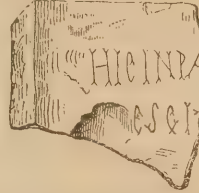 HICINDA
ESGI